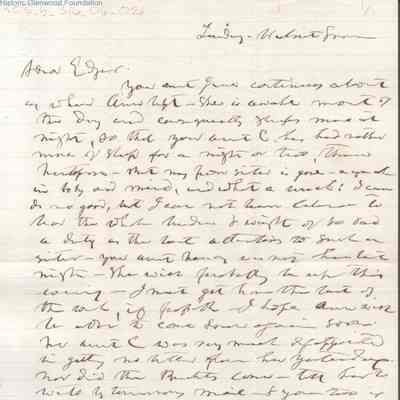 Historic Glenwood Foundation
Tuesday - Walnut Grove
Dear Edgar.
Your aunt Jane continues about
as when Anna left - She is awake most of
the day and consequently sleeps more at
night, so that your aunt C. has had rather
more of sleep for a night or two, than
heretofore - But my poor sister is gone - a wreck
in body and mind, and what a wreck! I can
do no good, but I can not leave
the whole burden & weight of so sad
a duty as the last attentions to such a
sister - your aunt Nancy was not here last
night - She will probably be up this
evening - I must get home the last of
the week, if possible & I hope Anna will
be able to come down again soon.
Your aunt C was very much disappointed
in getting no letter from her yesterday.
Nor did the come - tell her to
write by tomorrow's mail - & you too if